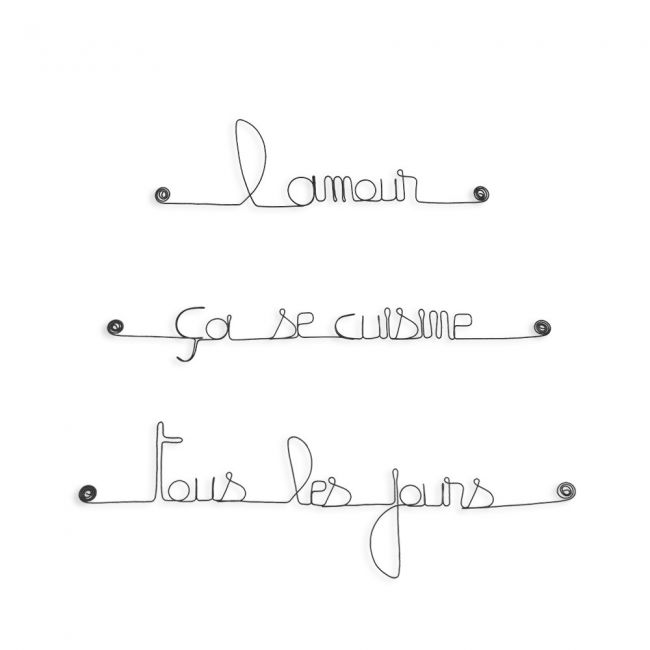 l amour
ça se cuisine
tous les jours